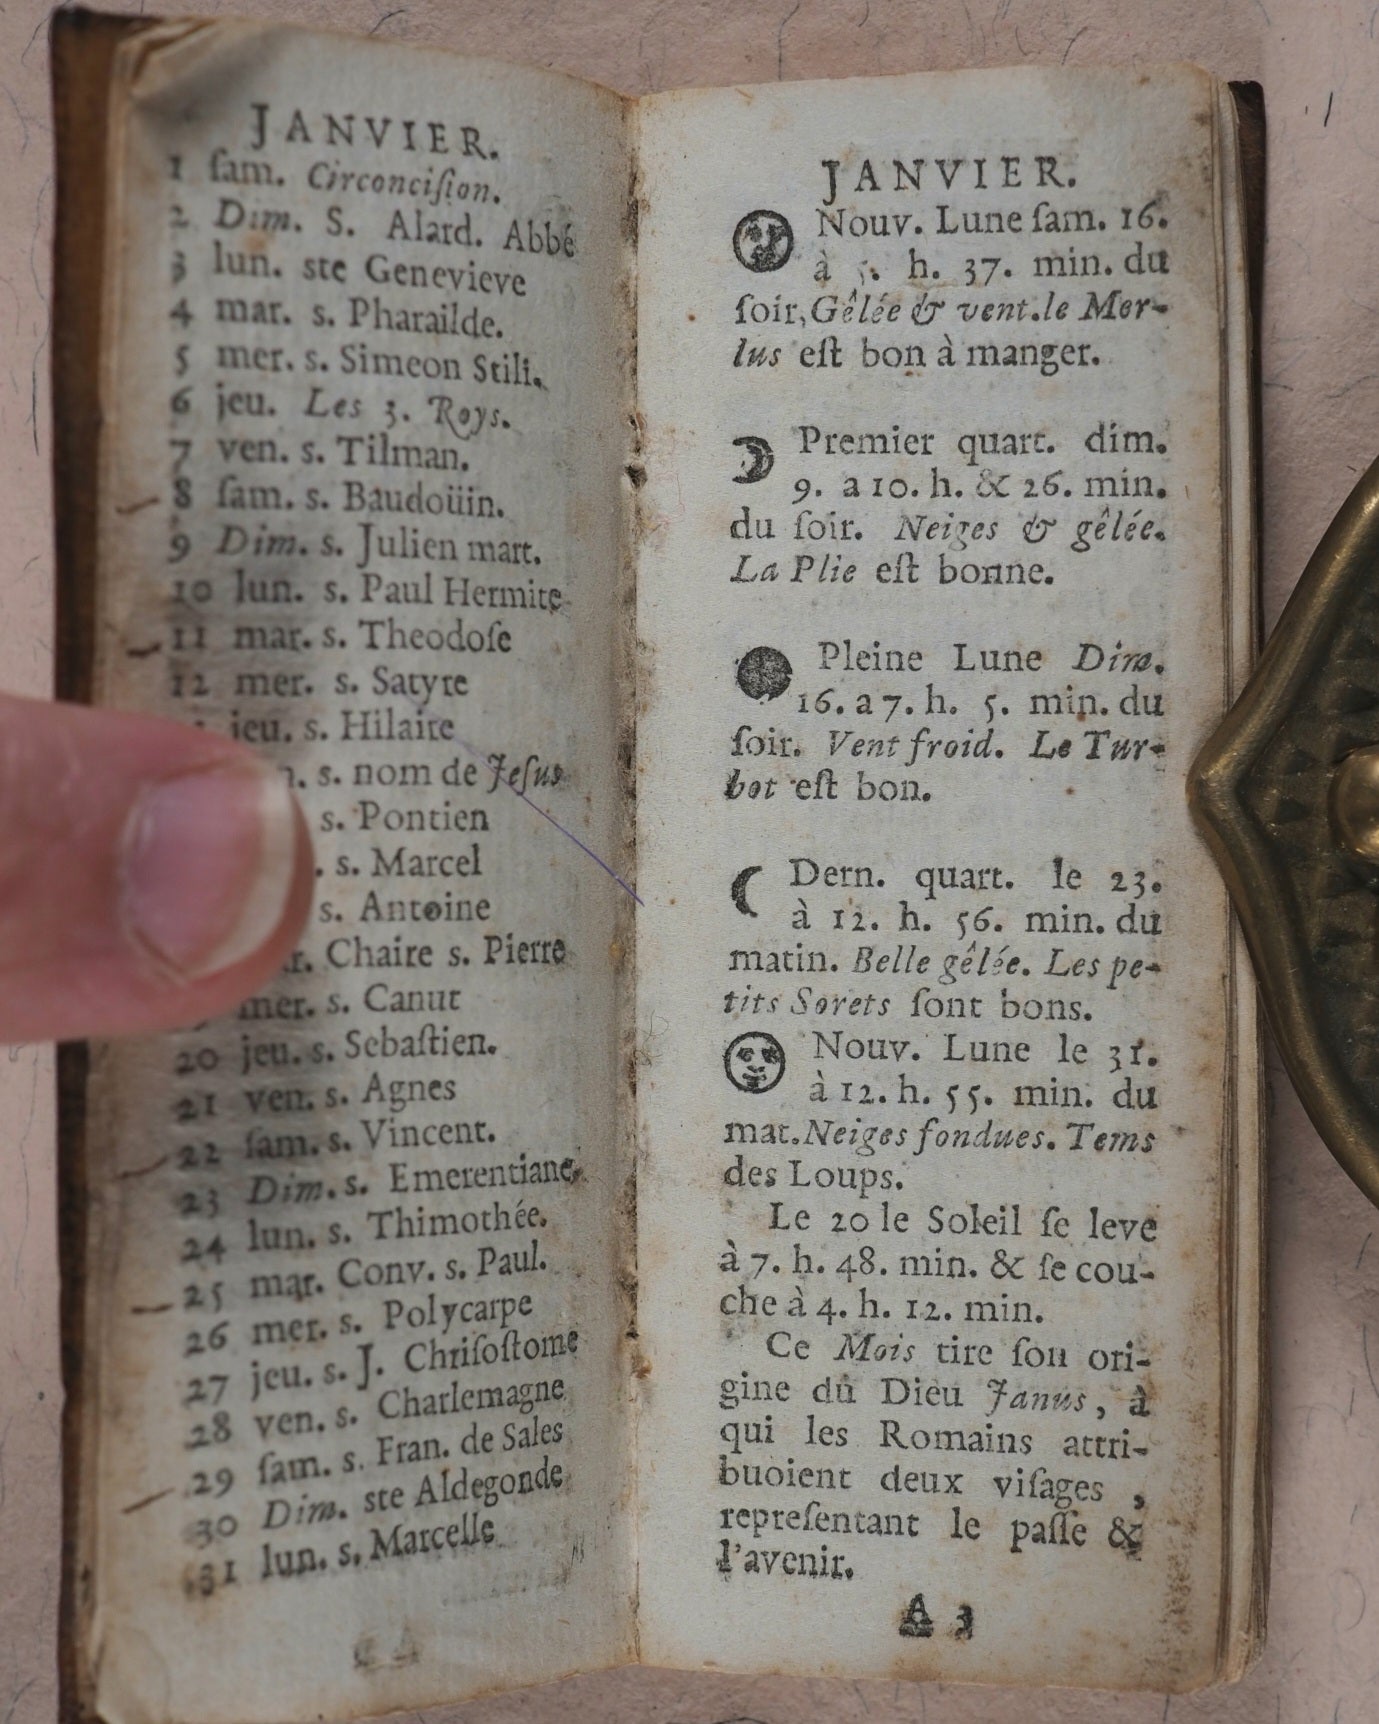 JANVIER.
1 ſam. Circonciſion.
2 Dim. S. Alard. Abbé
3 lun. ste Genevieve
4 mar. s. Pharailde.
5 mer. s. Simeon Stili.
6 jeu. Les 3. Roys.
7 ven. s. Tilman.
8 ſam. s. Baudoüin.
9 Dim. s. Julien mart.
10 lun. s. Paul Hermite
11 mar. s. Theodoſe
12 mer. s. Satyre
jeu. s. Hilaire
s. nom de Jeſus
s. Pontien
s. Marcel
s. Antoine
Chaire s. Pierre
mer. s. Canut
20 jeu. s. Sebaſtien.
21 ven. s. Agnes
22 ſam. s. Vincent.
23 Dim. s. Emerentiane,
24 lun. s. Thimothée.
25 mar. Conv. s. Paul.
26 mer. s. Polycarpe
27 jeu. s. J. Chriſoſtome
28 ven. s. Charlemagne
29 ſam. s. Fran. de Sales
30 Dim. ste Aldegonde
31 lun. s. Marcelle
JANVIER.
Nouv. Lune ſam. 16.
à h. 37. min. du
ſoir, Gêlée & vent. le Mer-
lus eſt bon à manger.
Premier quart. dim.
9. a 10. h. & 26. min.
du ſoir. Neiges & gêlée.
La Plie eſt bonne.
Pleine Lune Dim.
16. a 7. h. 5. min. du
ſoir. Vent froid. Le Tur-
bot eſt bon.
Dern. quart. le 23.
à 12. h. 56. min. du
matin. Belle gêlée. Les pe-
tits Sorets ſont bons.
Nouv. Lune le 31.
à 12. h. 55. min. du
mat. Neiges fondues. Tems
des Loups.
Le 20 le Soleil ſe leve
à 7. h. 48. min. & ſe cou-
che à 4. h. 12. min.
Ce Mois tire ſon ori-
gine du Dieu Janus, à
qui les Romains attri-
buoient deux viſages,
repreſentant le paſſe &
l'avenir.
A 3